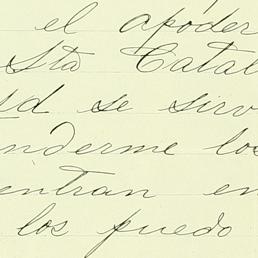 el apoder
Sta Catal
d se sirv
nderme los
entran en
los puedo